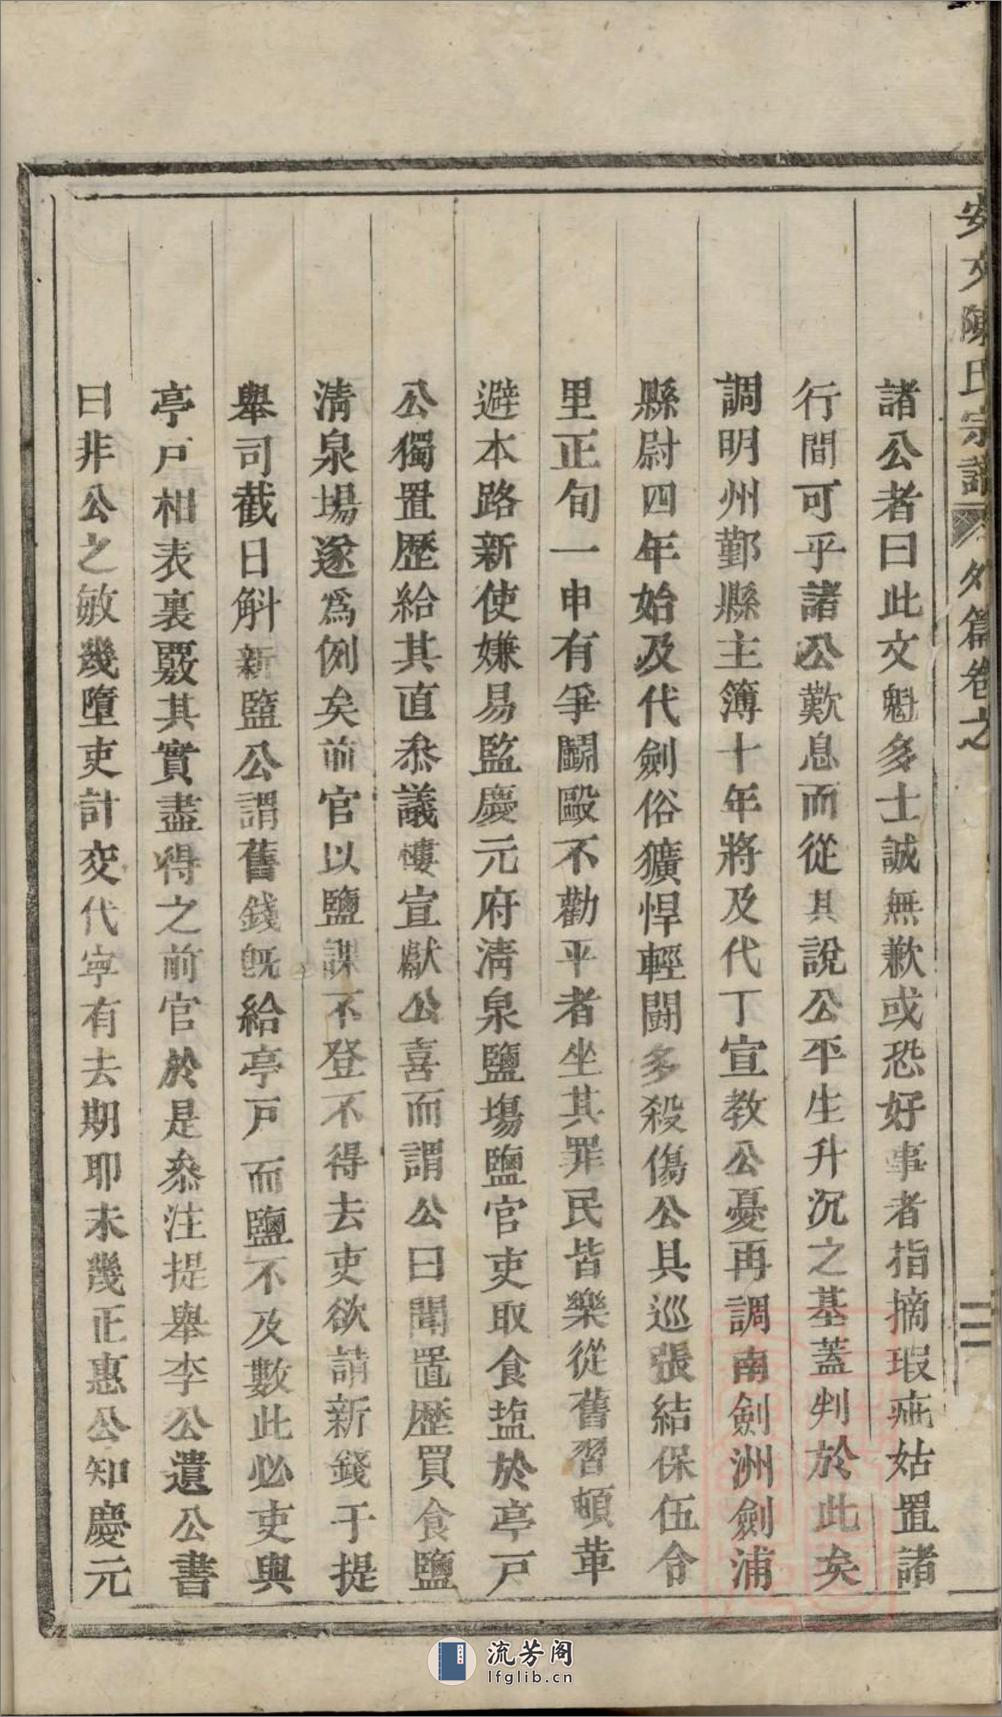 安文陳氏宗譜 外篇卷之 三
諸公者曰此文魁多士誠無歉或恐好事者指摘瑕疵姑置諸
行間可乎諸公歎息而從其說公平生升沉之基蓋判於此矣
調明州鄞縣主簿十年將及代丁宣教公憂再調南劍洲劍浦
縣尉四年始及代劍俗獷悍輕鬪多殺傷公具巡張結保伍令
里正旬一申有爭鬭毆不勸平者坐其罪民皆樂從舊習頓革
避本路新使嫌易監慶元府清泉鹽塲鹽官吏取食盐於亭戸
公獨置歷給其直叅議樓宣獻公喜而謂公曰聞置歷買食鹽
清泉場遂爲例矣前官以鹽課不登不得去吏欲請新錢于提
舉司截日斛新鹽公謂舊錢旣給亭戸而鹽不及數此必吏與
亭戸相表裏覈其實盡得之前官於是叅注提舉李公遺公書
曰非公之敏幾墮吏計交代寧有去期耶未幾正惠公知慶元
流芳阁
lfglib.cn